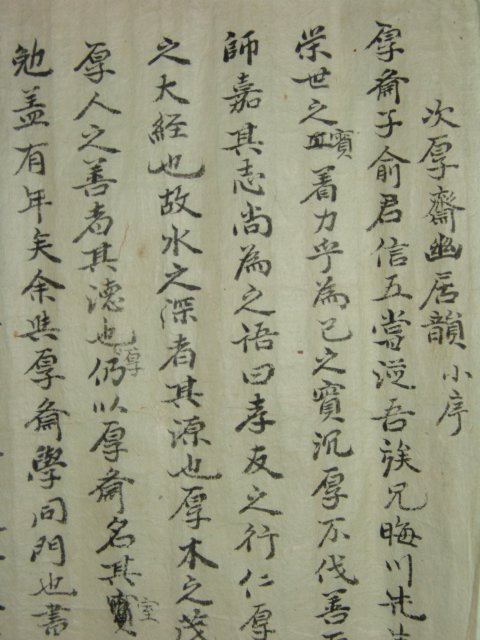 次厚齋幽居韻 小序
厚齋子俞君信五嘗從吾族兄晦川先
榮世之實着力乎為己之實沉厚不伐善
師嘉其志尚為之語曰孝友之行仁厚
之大経也故水之深者其源也厚木之茂
厚人之善者其德也厚仍以厚齋名其室
勉盖有年矣余與厚齋學同門也書